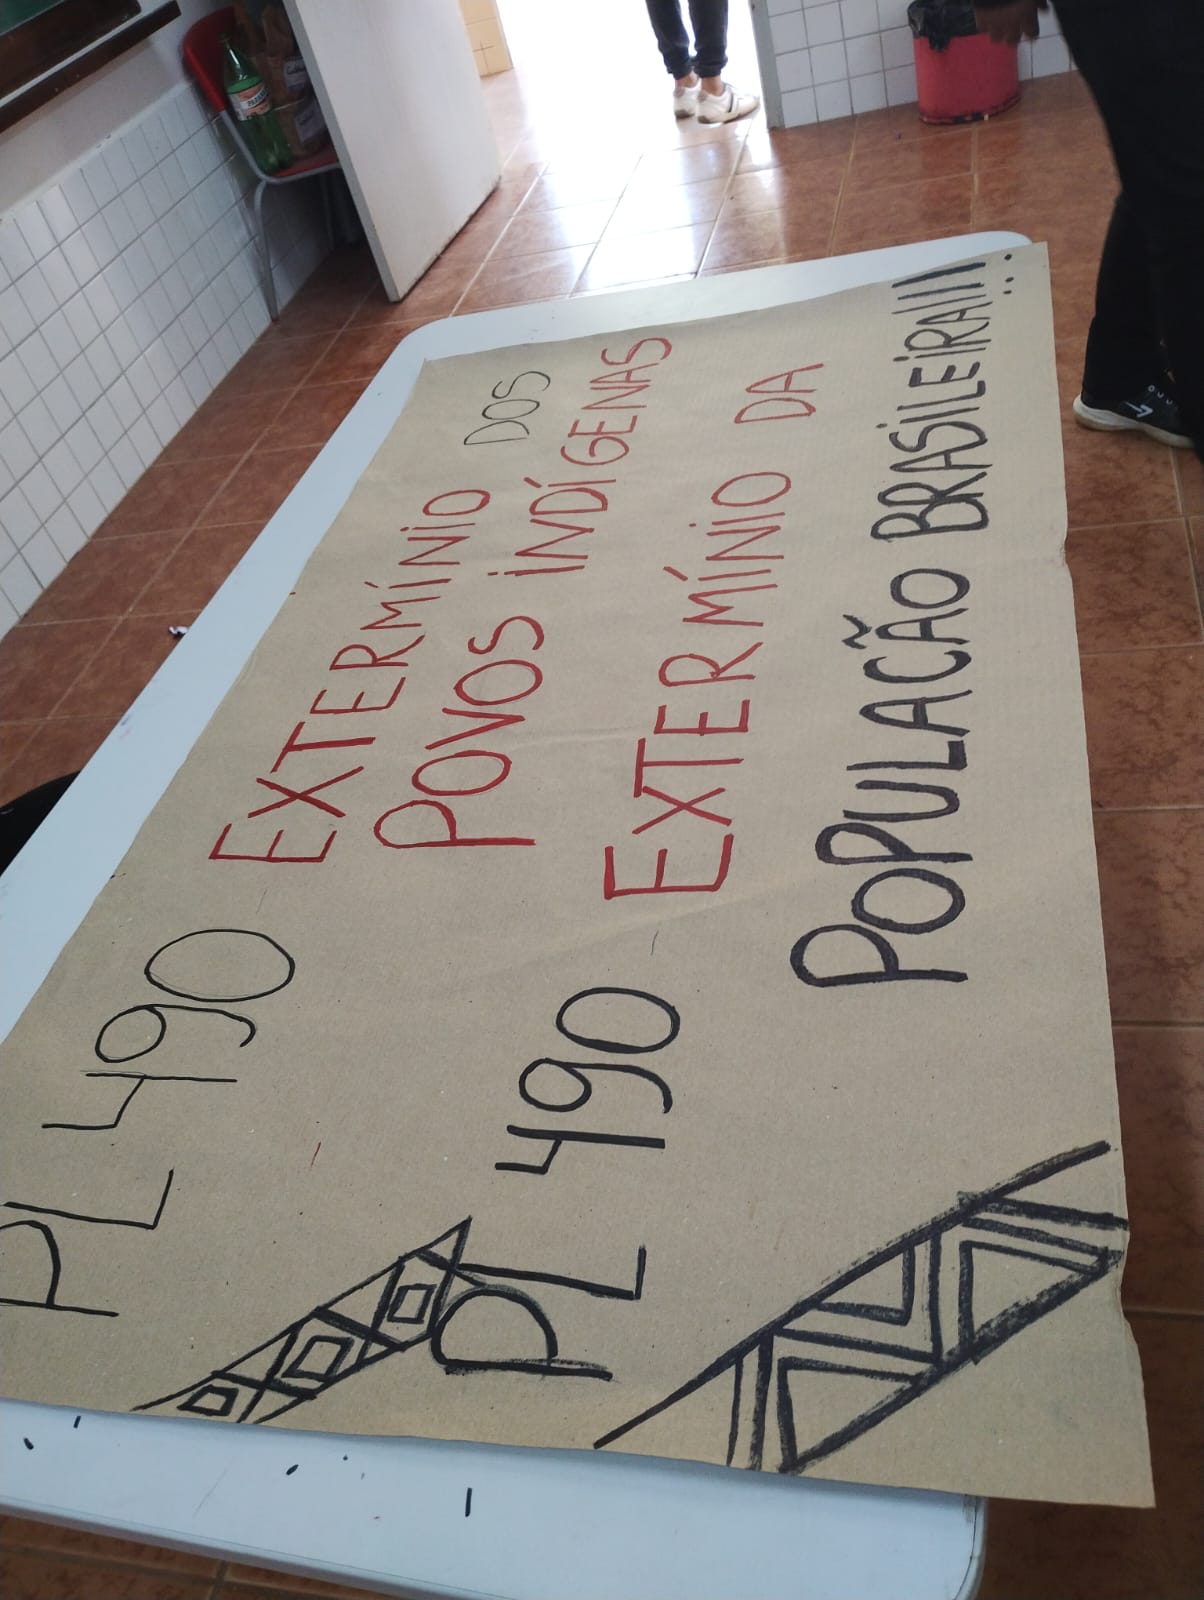 PL 490 EXTERMÍNIO DOS
POVOS INDÍGENAS
PL 490 - EXTERMÍNIO DA
POPULACÃO BRASILEIRA!!!...